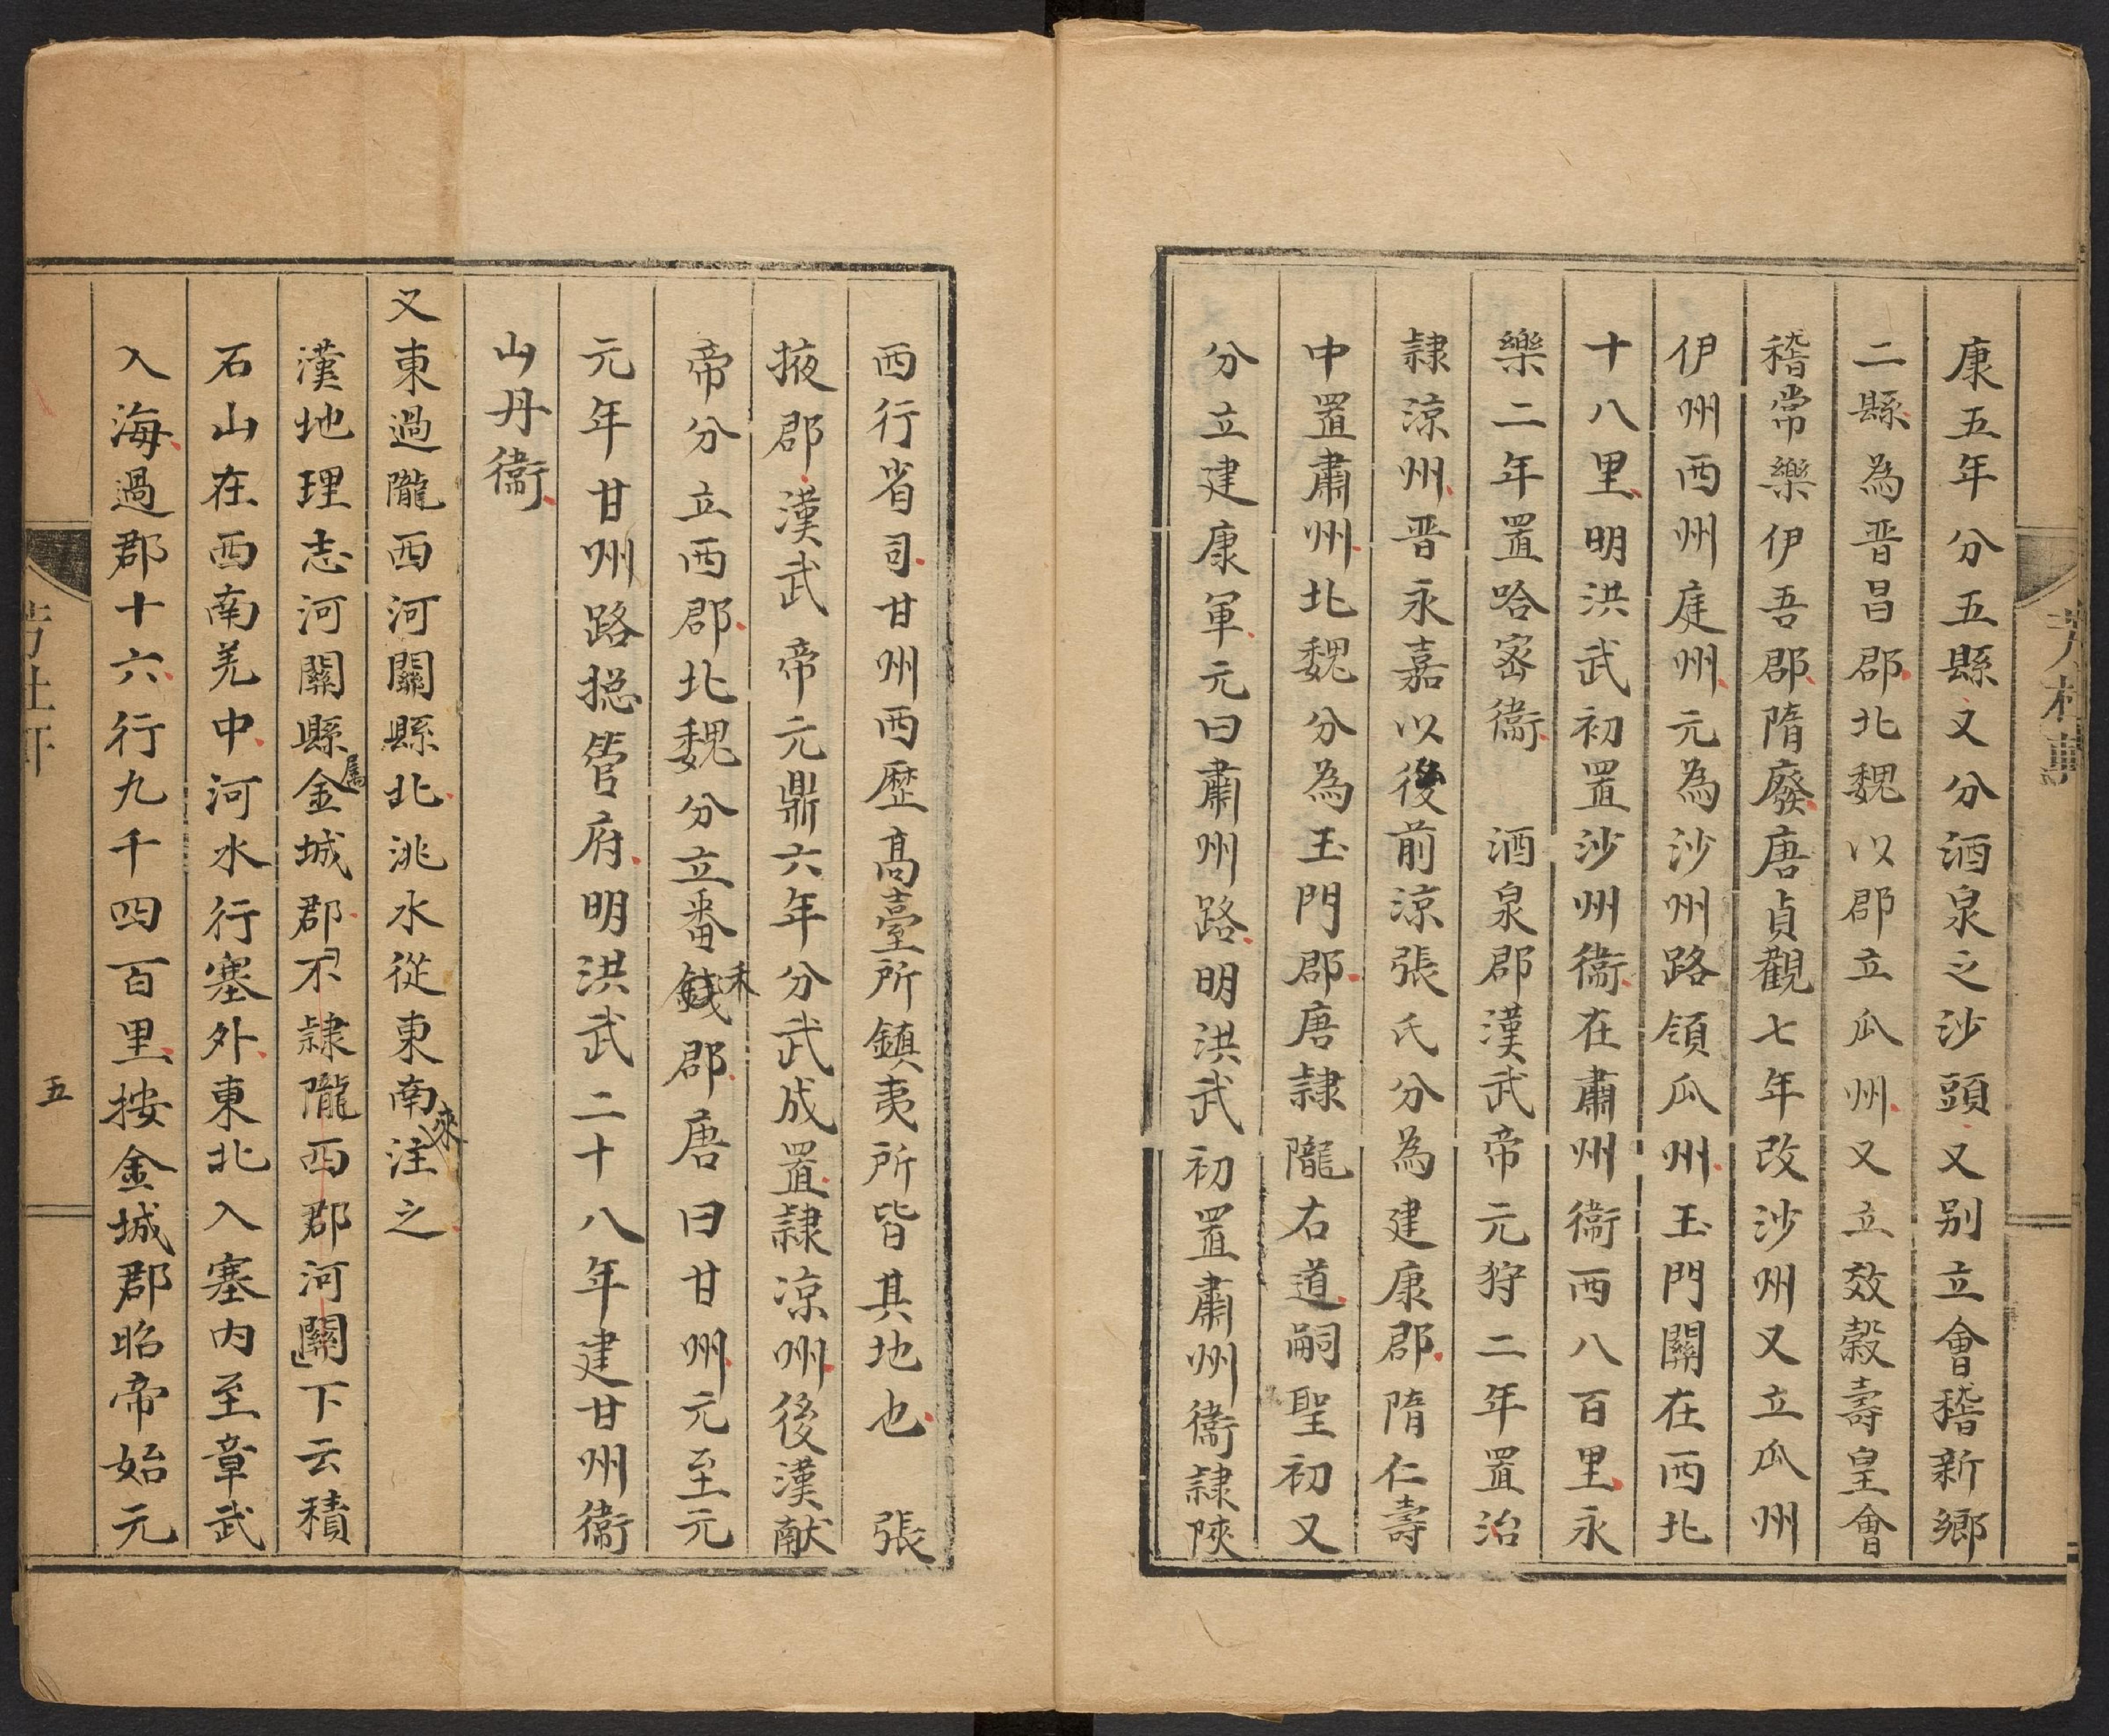 康五年分五縣又分酒泉之沙頭又别立會稽新鄉
二縣為晋昌郡北魏以郡立瓜州又立效穀壽皇會
稽常樂伊吾郡隋廢唐貞觀七年改沙州又立瓜州
伊州西州庭州元為沙州路領瓜州玉門關在西北
十八里明洪武初置沙州衞在肅州衞西八百里永
樂二年置哈宻衞 酒泉郡漢武帝元狩二年置治
隸涼州晋永嘉以後前涼張氏分為建康郡隋仁壽
中置肅州北魏分為玉門郡唐隸隴右道嗣聖初又
分立建康軍元曰肅州路明洪武初置肅州衞隸陜
西行省司甘州西歷髙臺所鎮夷所皆其地也 張
掖郡漢武帝元鼎六年分武成置隸凉州後漢献
帝分立西郡北魏分立番錢禾郡唐曰甘州元至元
元年甘州路捴管府明洪武二十八年建甘州衞
山丹衞
又東過隴西河關縣北洮水從東南來注之
漢地理志河關縣屬金城郡不隸隴西郡河關下云積
石山在西南羌中河水行塞外東北入塞内至章武
入海過郡十六行九千四百里按金城郡昭帝始元
五